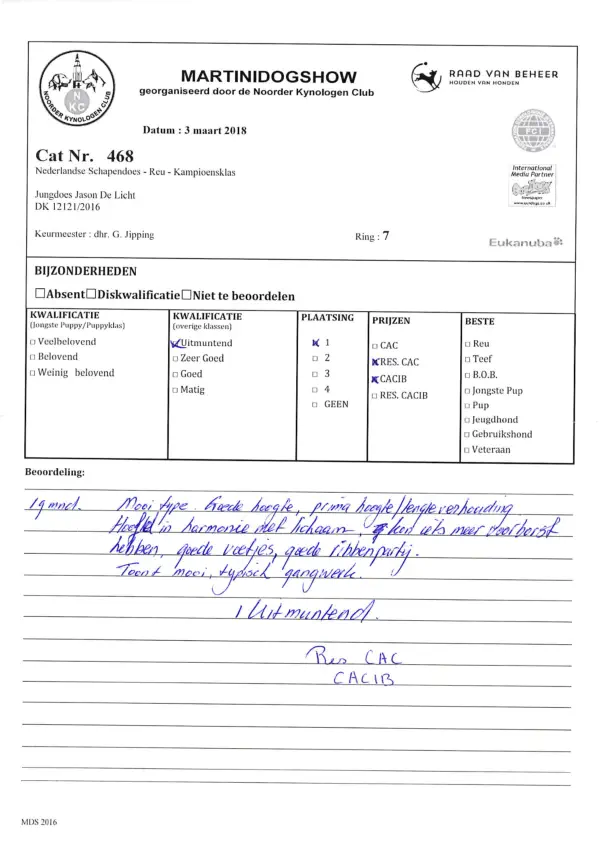 NOORDER KYNOLOGEN CLUB
NKC
MARTINIDOGSHOW
georganiseerd door de Noorder Kynologen Club
RAAD VAN BEHEER
HOUDEN VAN HONDEN
Datum : 3 maart 2018
FCI
Cat Nr. 468
Nederlandse Schapendoes - Reu - Kampioensklas
International
Media Partner
Jungdoes Jason De Licht
DK 12121/2016
Keurmeester : dhr. G. Jipping
Ring : 7
Eukanuba
BIJZONDERHEDEN
☐Absent☐Diskwalificatie☐Niet te beoordelen
KWALIFICATIE
(Jongste Puppy/Puppyklas)
□ Veelbelovend
□ Belovend
□ Weinig belovend
KWALIFICATIE
(overige klassen)
☒Uitmuntend
□ Zeer Goed
□ Goed
□ Matig
PLAATSING
☒ 1
□ 2
□ 3
□ 4
□ GEEN
PRIJZEN
□ CAC
☒RES. CAC
☒CACIB
□ RES. CACIB
BESTE
□ Reu
□ Teef
□ B.O.B.
□ Jongste Pup
□ Pup
□ Jeugdhond
□ Gebruikshond
□ Veteraan
Beoordeling:
19 mnd. Mooi type. Goede hoogte, prima hoogte/lengteverhouding.
Hoofd in harmonie met lichaam, kon iets meer voorborst
hebben, goede voetjes, goede ribbenpartij.
Toont mooi, typisch gangwerk.
1 Uitmuntend.
Res CAC
CACIB
MDS 2016